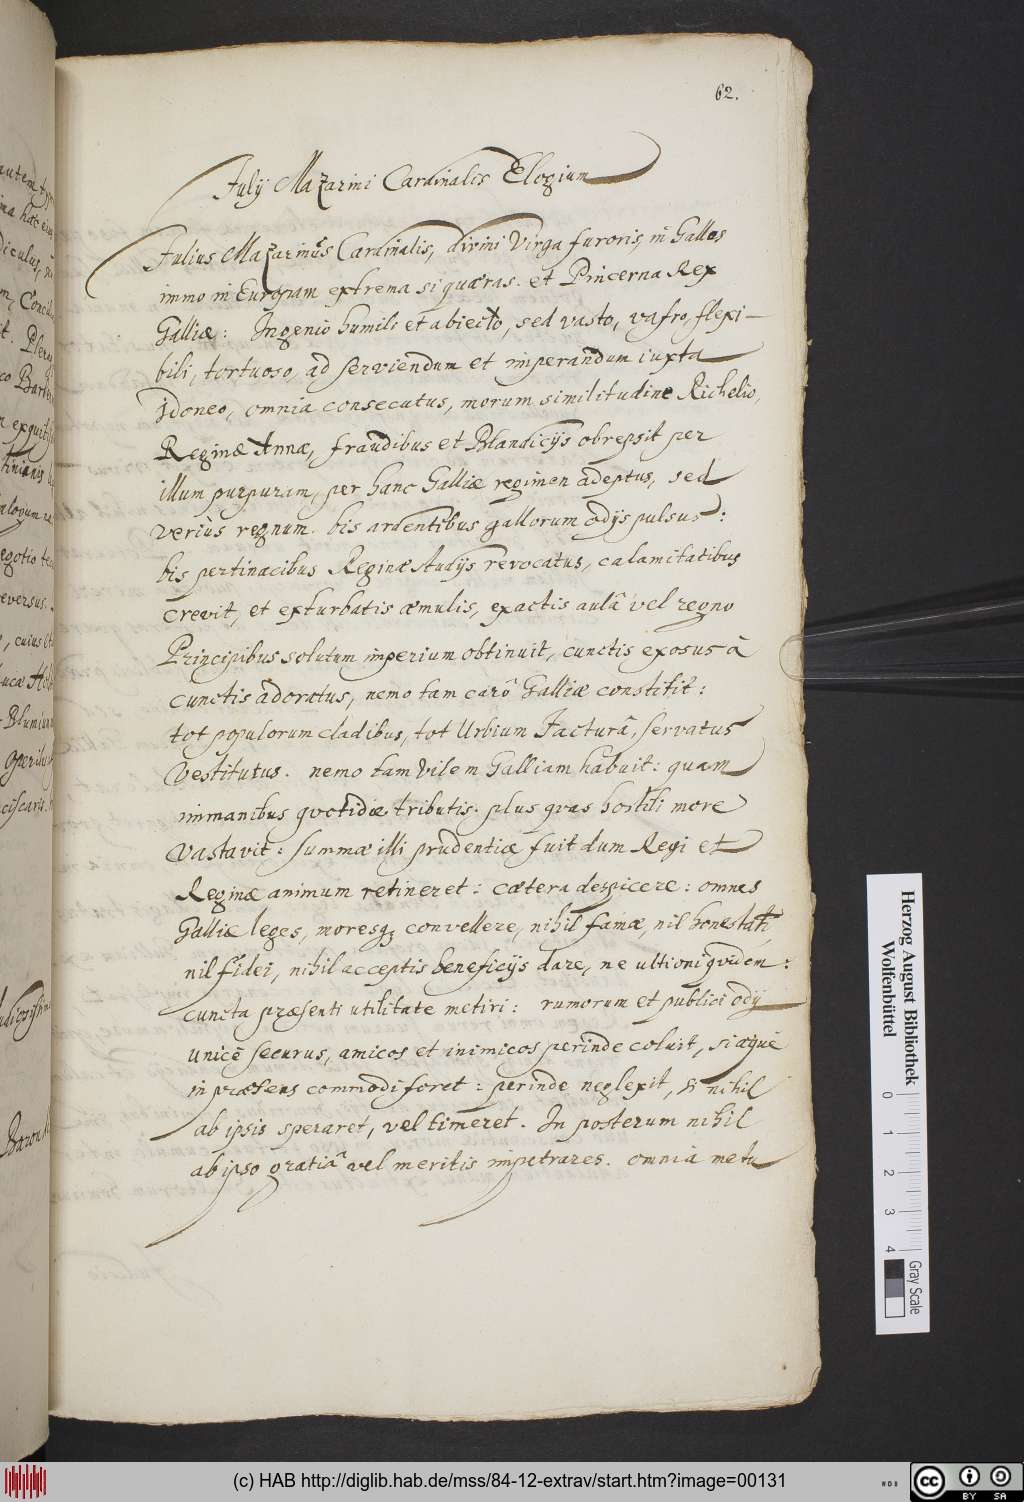 62.
Julij Mazarini Cardinalis Elogium
Julius Mazarinus Cardinalis, divini Virga furoris, in Gallos
immo in Europam extrema si quæras. et Pincerna Rex
Galliæ: Ingenio humili et abiecto, sed vasto, vafro, flexi-
bili, tortuoso, ad serviendum et imperandum iuxta
Idoneo, omnia consecutus, morum similitudine Richelio,
Reginæ Annæ, fraudibus et Blandicijs obrepsit per
illum purpuram, per hanc Galliæ regimen adeptus, sed
verius regnum. bis ardentibus gallorum odijs pulsus:
bis pertinacibus Reginæ studijs revocatus, calamitatibus
crevit, et exturbatis æmulis, exactis aulâ vel regno
Principibus solutum imperium obtinuit, cunctis exosus à
cunctis adoratus, nemo tam carô Galliæ constitit:
tot populorum cladibus, tot Urbium Jacturâ, servatus
Vestitutus. nemo tam vilem Galliam habuit: quam
immanibus quotidie tributis. plus quas hostili more
Vastavit: summæ illi prudentiæ fuit dum Regi et
Reginæ animum retineret: cætera despicere: omnes
Galliæ leges, moresq; convellere, nihil famæ, nil honestati,
nil fidei, nihil acceptis beneficijs dare, ne ultioni quidem:
cuncta præsenti utilitate metiri: rumorum et publici odij
unicè securus, amicos et inimicos perinde coluit, si æquè
in præsens commodi foret: perinde neglexit, si nihil
ab ipsis speraret, vel timeret. In posterum nihil
ab ipso gratiâ vel meritis impetrares. omnia metu
Herzog August Bibliothek
Wolfenbüttel
0 1 2 3 4
Gray Scale
(c) HAB http://diglib.hab.de/mss/84-12-extrav/start.htm?image=00131
WDB
cc BY SA